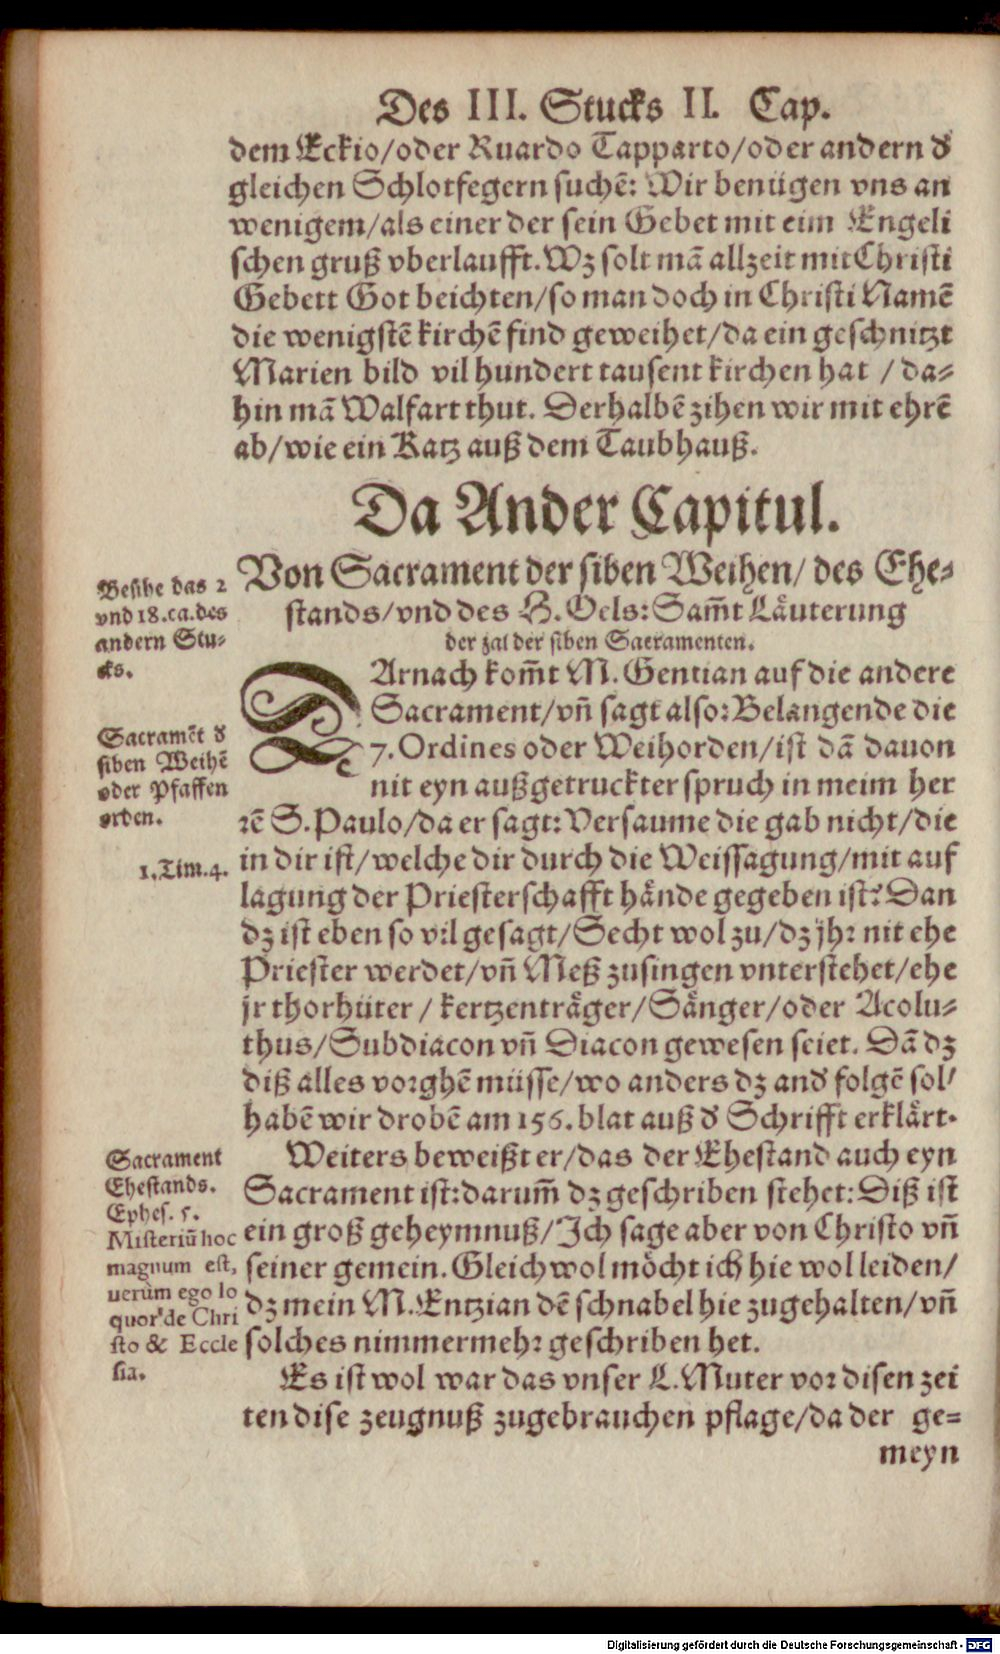 Des III. Stucks II. Cap.
dem Eckio/oder Ruardo Tapparto/oder andern đ
gleichen Schlotfegern suchē: Wir benügen vns an
wenigem/als einer der sein Gebet mit eim Engeli
schen gruß vberlaufft. Wz solt mā allzeit mit Christi
Gebett Got beichten/so man doch in Christi Namē
die wenigstē kirchē find geweihet/da ein geschnitzt
Marien bild vil hundert tausent kirchen hat / da-
hin mā Walfart thut. Derhalbē zihen wir mit ehrē
ab/wie ein Katz auß dem Taubhauß.
Da Ander Capitul.
Von Sacrament der siben Weihen/ des Ehe-
stands/vnd des H. Oels: Sam̄t Läuterung
der zal der siben Sacramenten.
Besihe das 2
vnd 18. ca. des
andern Stu-
cks.
DArnach kom̄t M. Gentian auf die andere
Sacrament/vn̄ sagt also: Belangende die
7. Ordines oder Weihorden/ist dā dauon
nit eyn außgetruckter spruch in meim her
rē S. Paulo/da er sagt: Versaume die gab nicht/die
in dir ist/welche dir durch die Weissagung/mit auf
lagung der Priesterschafft hände gegeben ist? Dan
dz ist eben so vil gesagt/Secht wol zu/dz jhr nit ehe
Priester werdet/vn̄ Meß zusingen vnterstehet/ehe
jr thorhüter / kertzenträger/Sänger/oder Acolu-
thus/Subdiacon vn̄ Diacon gewesen seiet. Dā dz
diß alles vorghē müsse/wo anders dz anđ folgē sol/
habē wir drobē am 156. blat auß đ Schrifft erklärt.
Sacramēt đ
siben Weihē
oder Pfaffen
orden.
1. Tim. 4.
Weiters beweißt er/das der Ehestand auch eyn
Sacrament ist: darum̄ dz geschriben stehet: Diß ist
ein groß geheymnuß/Ich sage aber von Christo vn̄
seiner gemein. Gleichwol möcht ich hie wol leiden/
dz mein M. Entzian dē schnabel hie zugehalten/vn̄
solches nimmermehr geschriben het.
Sacrament
Ehestands.
Ephes. 5.
Misteriū hoc
magnum est,
uerùm ego lo
quor de Chri
sto & Eccle
sia.
Es ist wol war das vnser L. Muter vor disen zei
ten dise zeugnuß zugebrauchen pflage/da der ge-
meyn
Digitalisierung gefördert durch die Deutsche Forschungsgemeinschaft - DFG